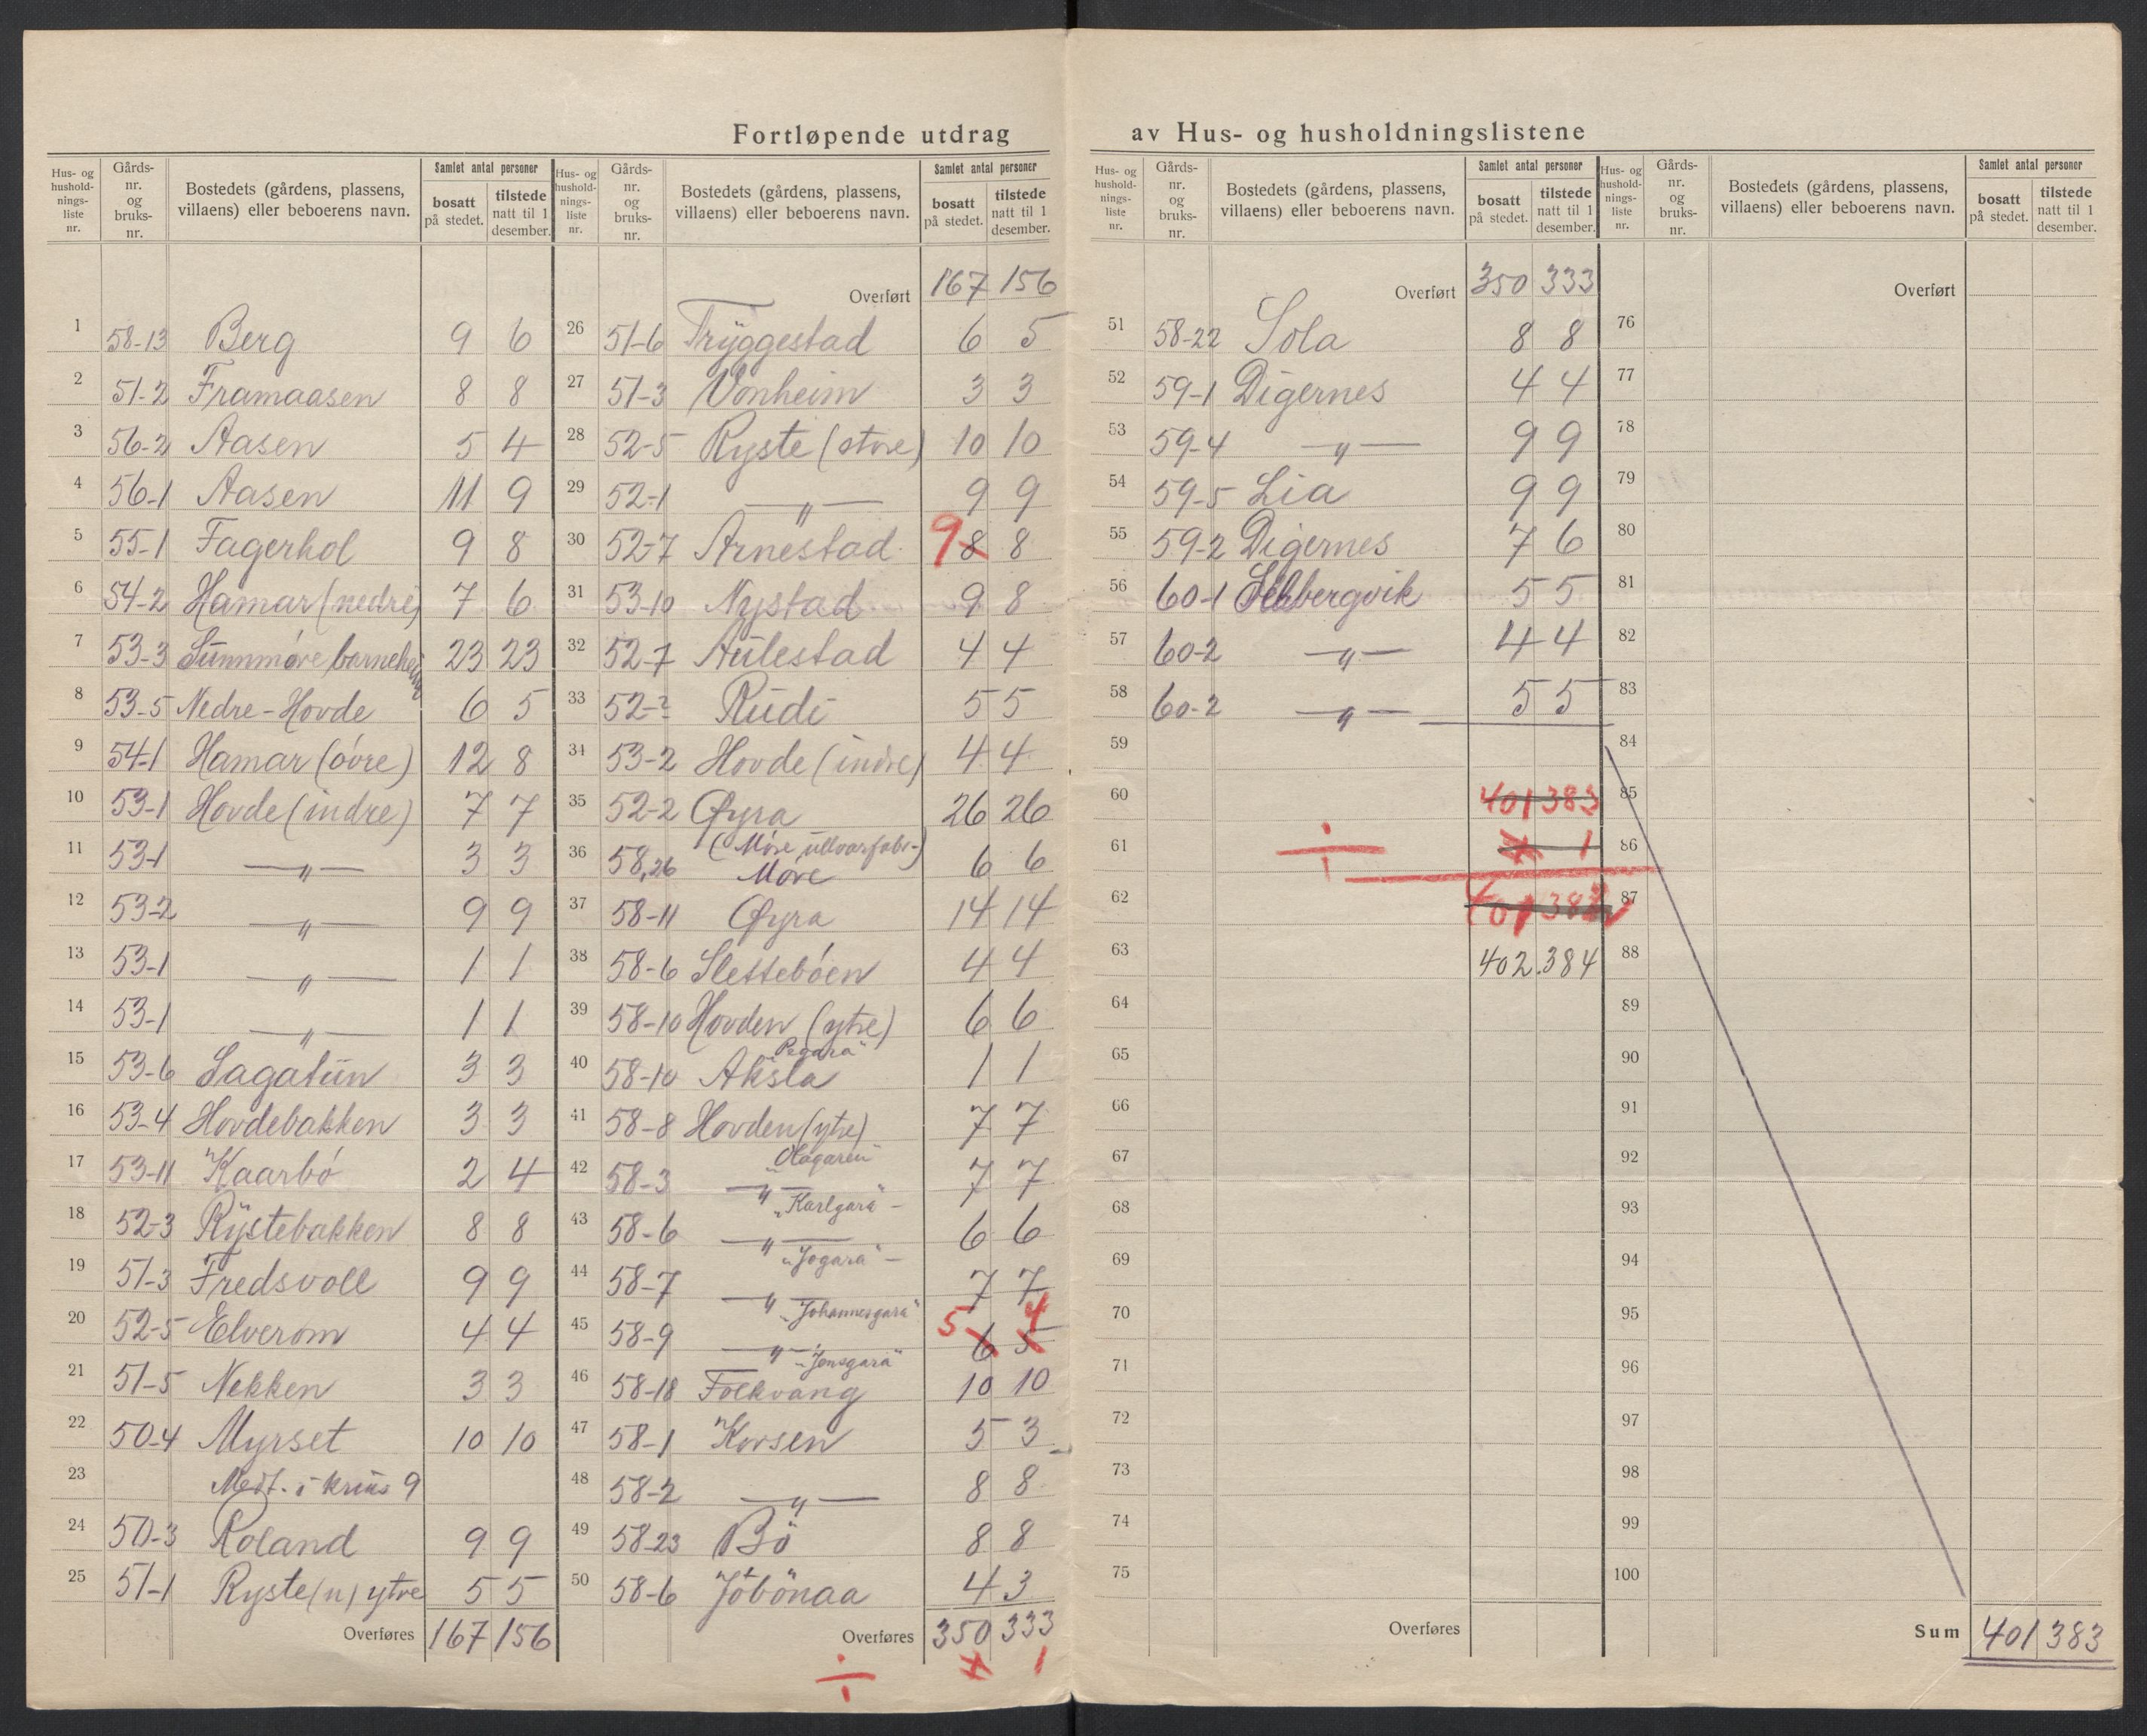 Fortløpende utdrag av Hus- og husholdningslistene
Hus- og hushold-nings-liste nr. | Gårds-nr. og bruks-nr. | Bostedets (gårdens, plassens, villaens) eller beboerens navn. | Samlet antal personer | bosatt på stedet. | tilstede natt til 1 desember.
1 58-13 Berg 9 6
2 51-2 Framaasen 8 8
3 56-2 Aasen 5 4
4 56-1 Aasen 11 9
5 55-1 Fagerhol 9 8
6 54-2 Hamar (nedre) 7 6
7 53-3 Sunnmøre barneheim 23 23
8 53-5 Nedre-Hovde 6 5
9 54-1 Hamar (övre) 12 8
10 53-1 Hovde (indre) 7 7
11 53-1 —〃— 3 3
12 53-2 —〃— 9 9
13 53-1 —〃— 1 1
14 53-1 —〃— 1 1
15 53-6 Lagatun 3 3
16 53-4 Hovdebakken 3 3
17 53-11 Kaarbö 2 4
18 52-3 Rystebakken 8 8
19 51-3 Fredsvoll 9 9
20 52-5 Elverom 4 4
21 51-5 Nekken 3 3
22 50-4 Myrset 10 10
23 i krüs 9
24 50-3 Roland 9 9
25 51-1 Ryste(n) ytre 5 5
Overføres 167 156
Hus- og hushold-nings-liste nr. | Gårds-nr. og bruks-nr. | Bostedets (gårdens, plassens, villaens) eller beboerens navn. | Samlet antal personer | bosatt på stedet. | tilstede natt til 1 desember.
Overført 167 156
26 51-6 Tryggestad 6 5
27 51-3 Vonheim 3 3
28 52-5 Ryste (store) 10 10
29 52-1 —〃— 9 9
30 52-7 Arnestad 9 8 8
31 53-10 Nystad 9 8
32 52-7 Aulestad 4 4
33 52-? Rudi 5 5
34 53-2 Hovde (indre) 4 4
35 52-2 Øyra 26 26
(Møre ullvarfabr-)
36 58,26 Møre 6 6
37 58-11 Øyra 14 14
38 58-6 Slettebøen 4 4
39 58-10 Hovden (ytre) 6 6
"Pegara"
40 58-10 Aksla 1 1
41 58-8 Hovden (ytre) 7 7
"Olagaren"
42 58-3 —〃— 7 7
"Karlgara"
43 58-6 —〃— 6 6
"Jogara"
44 58-7 —〃— 7 7
"Johannesgara"
45 58-9 —〃— 5 6 4 5
"Jensgara"
46 58-18 Folkvang 10 10
47 58-1 Korsen 5 3
48 58-2 —〃— 8 8
49 58-23 Bö 8 8
50 58-6 Jöbönaa 4 3
Overføres 350 333
÷ 1 1
Hus- og hushold-nings-liste nr. | Gårds-nr. og bruks-nr. | Bostedets (gårdens, plassens, villaens) eller beboerens navn. | Samlet antal personer | bosatt på stedet. | tilstede natt til 1 desember.
Overført 350 333
51 58-22 Sola 8 8
52 59-1 Digernes 4 4
53 59-4 —〃— 9 9
54 59-5 Lia 9 9
55 59-2 Digernes 7 6
56 60-1 5 5
57 60-2 —〃— 4 4
58 60-2 —〃— 5 5
59
60 401 383
61 ÷ 1
62 401
63 402 384
64
65
66
67
68
69
70
71
72
73
74
75
Overføres
Hus- og hushold-nings-liste nr. | Gårds-nr. og bruks-nr. | Bostedets (gårdens, plassens, villaens) eller beboerens navn. | Samlet antal personer | bosatt på stedet. | tilstede natt til 1 desember.
Overført
76
77
78
79
80
81
82
83
84
85
86
87
88
89
90
91
92
93
94
95
96
97
98
99
100
Sum 401 383